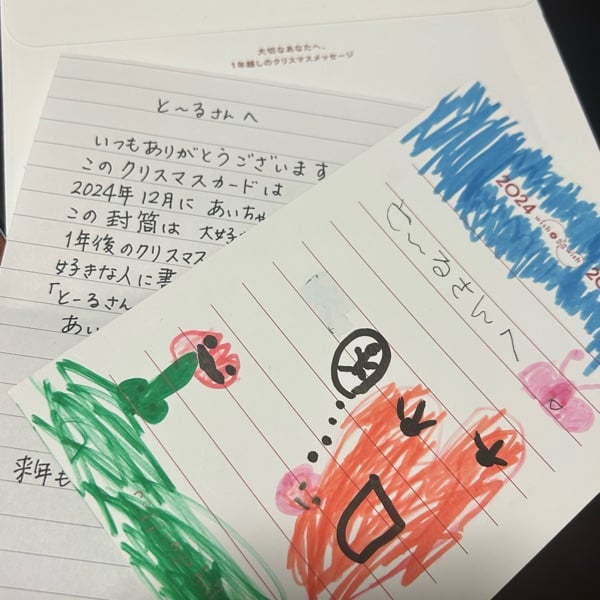 大切なあなたへ、
1年越しのクリスマスメッセージ
と〜るさんへ
いつもありがとうございます
このクリスマスカードは
2024年12月に あいちゃ
この封筒は 大好き
1年後のクリスマス
好きな人に書
「と〜るさん
あい
来年も
2024
wish
wish
20
と〜るさんへ